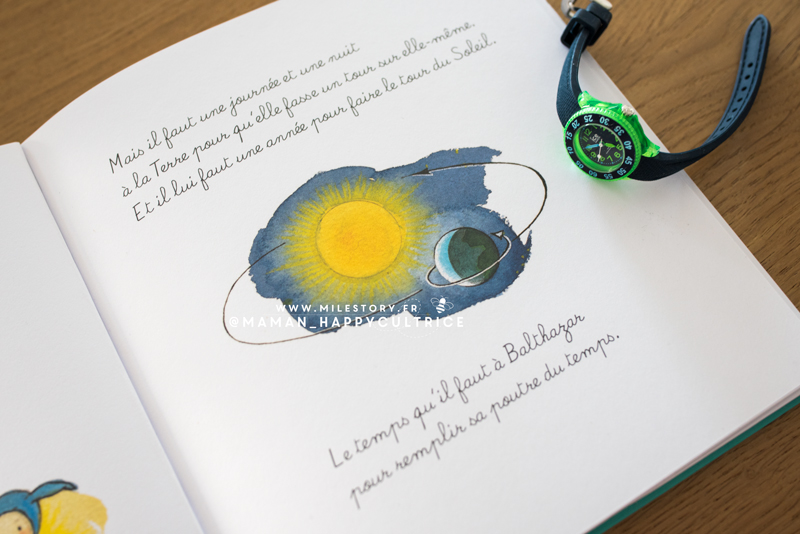 Mais il faut une journée et une nuit
à la Terre pour qu'elle fasse un tour sur elle-même.
Et il lui faut une année pour faire le tour du Soleil.
WWW.MILESTORY.FR
@MAMAN_HAPPYCULTRICE
Le temps qu'il faut à Balthazar
pour remplir sa poutre du temps.